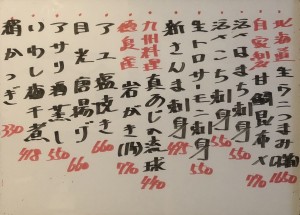 北海道 生ウニつまみ 1650
自家製 甘鯛昆布〆 770
活〆はまち刺身 550
活〆 刺身 550
生トロサーモン刺身 550
新さんま刺身 495
九州料理 真あじの琉球 440
徳島産 岩がき 770
アユ塩焼き 660
目光唐揚げ 660
アサリ酒蒸し 550
いわし梅干煮 418
絹かつぎ 330